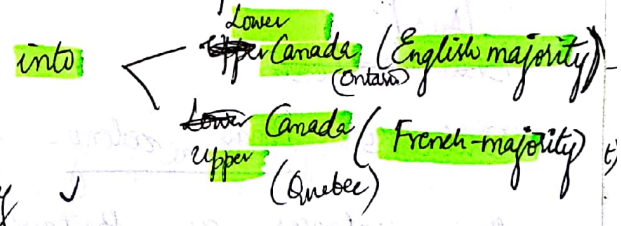 Lower
into Upper Canada (English majority)
(Ontario)
Lower Canada (French-majority)
Upper
(Quebec)